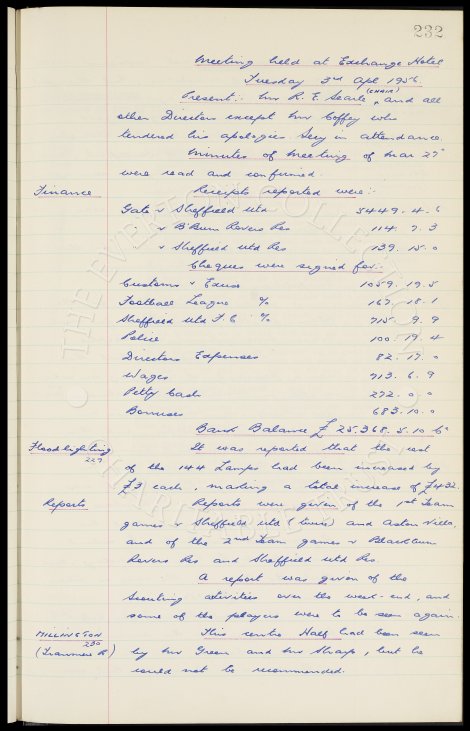 232
Meeting held at Exchange Hotel
Tuesday 3rd Apl 1956.
Present:- Mr R. E. Searle (CHAIR), and all
other Directors except Mr Coffey who
tendered his apologies. Secy in attendance.
Minutes of Meeting of Mar 27th
were read and confirmed
Finance Receipts reported were:-
Gate v Sheffield Utd 5449. 4. 6
v B'Burn Rovers Res 114. 7. 3
v Sheffield Utd Res 139. 15. 0
Cheques were signed for:-
Customs & Excise 1059. 19. 5
Football League % 167. 18. 1
Sheffield Utd F C % 715. 9. 9
Police 100. 19. 4
Directors Expenses 82. 17. 0
Wages 713. 6. 9
Petty Cash 272. 0. 0
Bonuses 683. 10. 0
Bank Balance £25,368. 5. 10
Floodlighting 229 It was reported that the cost
of the 144 Lamps had been increased by
£3 each, making a total increase of £432.
Reports Reports were given of the 1st Team
games v Sheffield Utd (twice) and Aston Villa,
and of the 2nd Team games v Blackburn
Rovers Res and Sheffield Utd Res.
A report was given of the
Scouting activities over the week-end, and
some of the players were to be seen again.
MILLINGTON 230 This centre Half had been seen
(Tranmere R) by Mr Green and Mr Sharp, but he
could not be recommended.
THE EVERTON COLLECTION